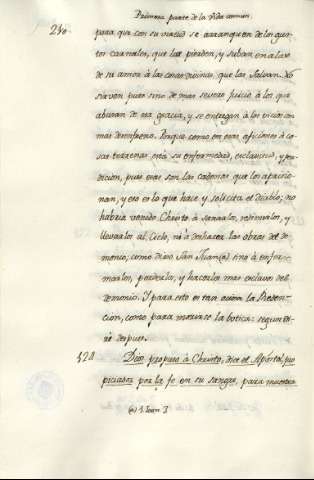 Primera parte de la Vida comun.
210
para que con su vuelo se arranquen de los gus-
tos carnales, que las pierden, y suban en alas
de su amor à las cosas divinas, que las salvan. No
sirven pues sino de mas severo juicio à los que
abusan de esa gracia, y se entregan à los vicios con
mas desenfreno. Porque como en esas aficiones à co-
sas terrenas está su enfermedad, esclavitud, y per-
dicion, pues esas son las cadenas que los aprisio-
nan, y eso es lo que hace y solicita el diablo; no
habria venido Christo à sanarlos, redimirlos, y
llevarlos al Cielo, ni à deshacer las obras del de-
monio, como dixo San Juan (a) sino à enfer-
marlos, perderlos, y hacerlos mas esclavos del
demonio. Y para esto es tan ociosa la Reden-
cion, como para morirse la botica: segun di-
ré despues.
528 Dios propuso à Christo, dice el Apostol, pro-
piciador por la fe en su sangre, para muestra
(a) 1. Joan. 3